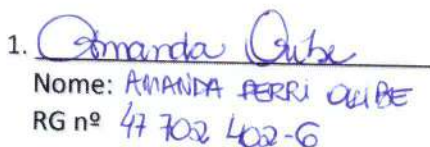 1. Amanda Oube
Nome: AMANDA PERRI OUBE
RG nº 47 702 402-6